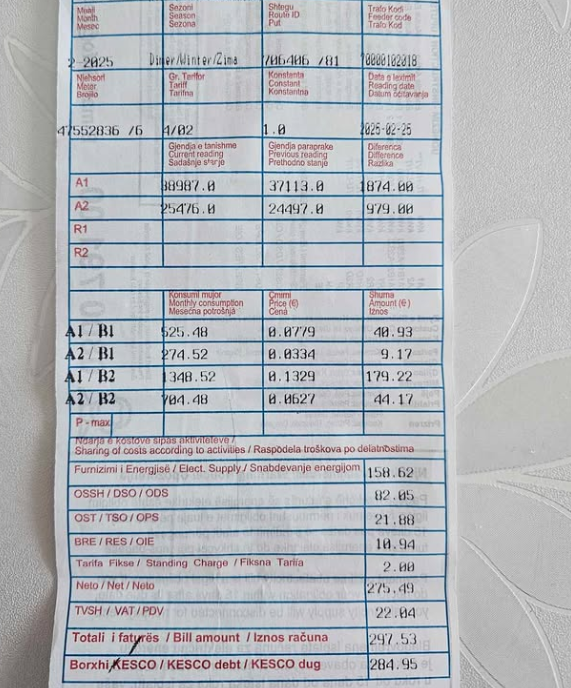 Muaji Sezoni Shtegu Trafo Kodi
Month Season Route ID Feeder code
Mesec Sezona Put Trafo Kod
2-2025 Dimer/Winter/Zima 706406 /81 70000102018
Njehsori Gr. Tarifor Konstanta Data e leximit
Meter Tariff Constant Reading date
Brojilo Tarifna Konstantna Datum očitavanja
47552836 /6 4/02 1.0 2025-02-25
Gjendja e tanishme Gjendja paraprake Diferenca
Current reading Previous reading Difference
Sadašnje stanje Prethodno stanje Razlika
A1 38987.0 37113.0 1874.00
A2 25476.0 24497.0 979.00
R1
R2
Konsumi mujor Çmimi Shuma
Monthly consumption Price (€) Amount (€)
Mesečna potrošnja Cena Iznos
A1 / B1 525.48 0.0779 40.93
A2 / B1 274.52 0.0334 9.17
A1 / B2 1348.52 0.1329 179.22
A2 / B2 704.48 0.0627 44.17
P - max
Ndarja e kostove sipas aktiviteteve /
Sharing of costs according to activities / Raspodela troškova po delatnostima
Furnizimi i Energjisë / Elect. Supply / Snabdevanje energijom 158.62
OSSH / DSO / ODS 82.05
OST / TSO / OPS 21.88
BRE / RES / OIE 10.94
Tarifa Fikse / Standing Charge / Fiksna Tarifa 2.00
Neto / Net / Neto 275.49
TVSH / VAT / PDV 22.04
Totali i faturës / Bill amount / Iznos računa 297.53
Borxhi KESCO / KESCO debt / KESCO dug 284.95